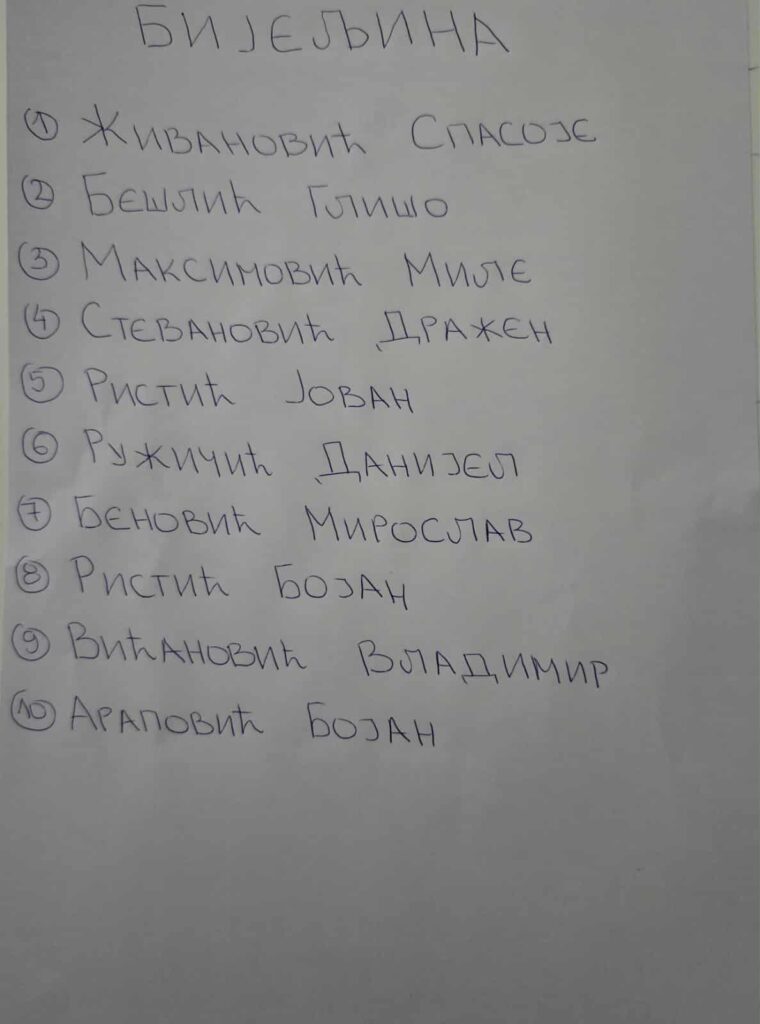 БИЈЕЉИНА
① ЖИВАНОВИЋ СПАСОЈЕ
② БЕШЛИЋ ГЛИШО
③ МАКСИМОВИЋ МИЛЕ
④ СТЕВАНОВИЋ ДРАЖЕН
⑤ РИСТИЋ ЈОВАН
⑥ РУЖИЧИЋ ДАНИЈЕЛ
⑦ БЕНОВИЋ МИРОСЛАВ
⑧ РИСТИЋ БОЈАН
⑨ ВИЋАНОВИЋ ВЛАДИМИР
⑩ АРАПОВИЋ БОЈАН